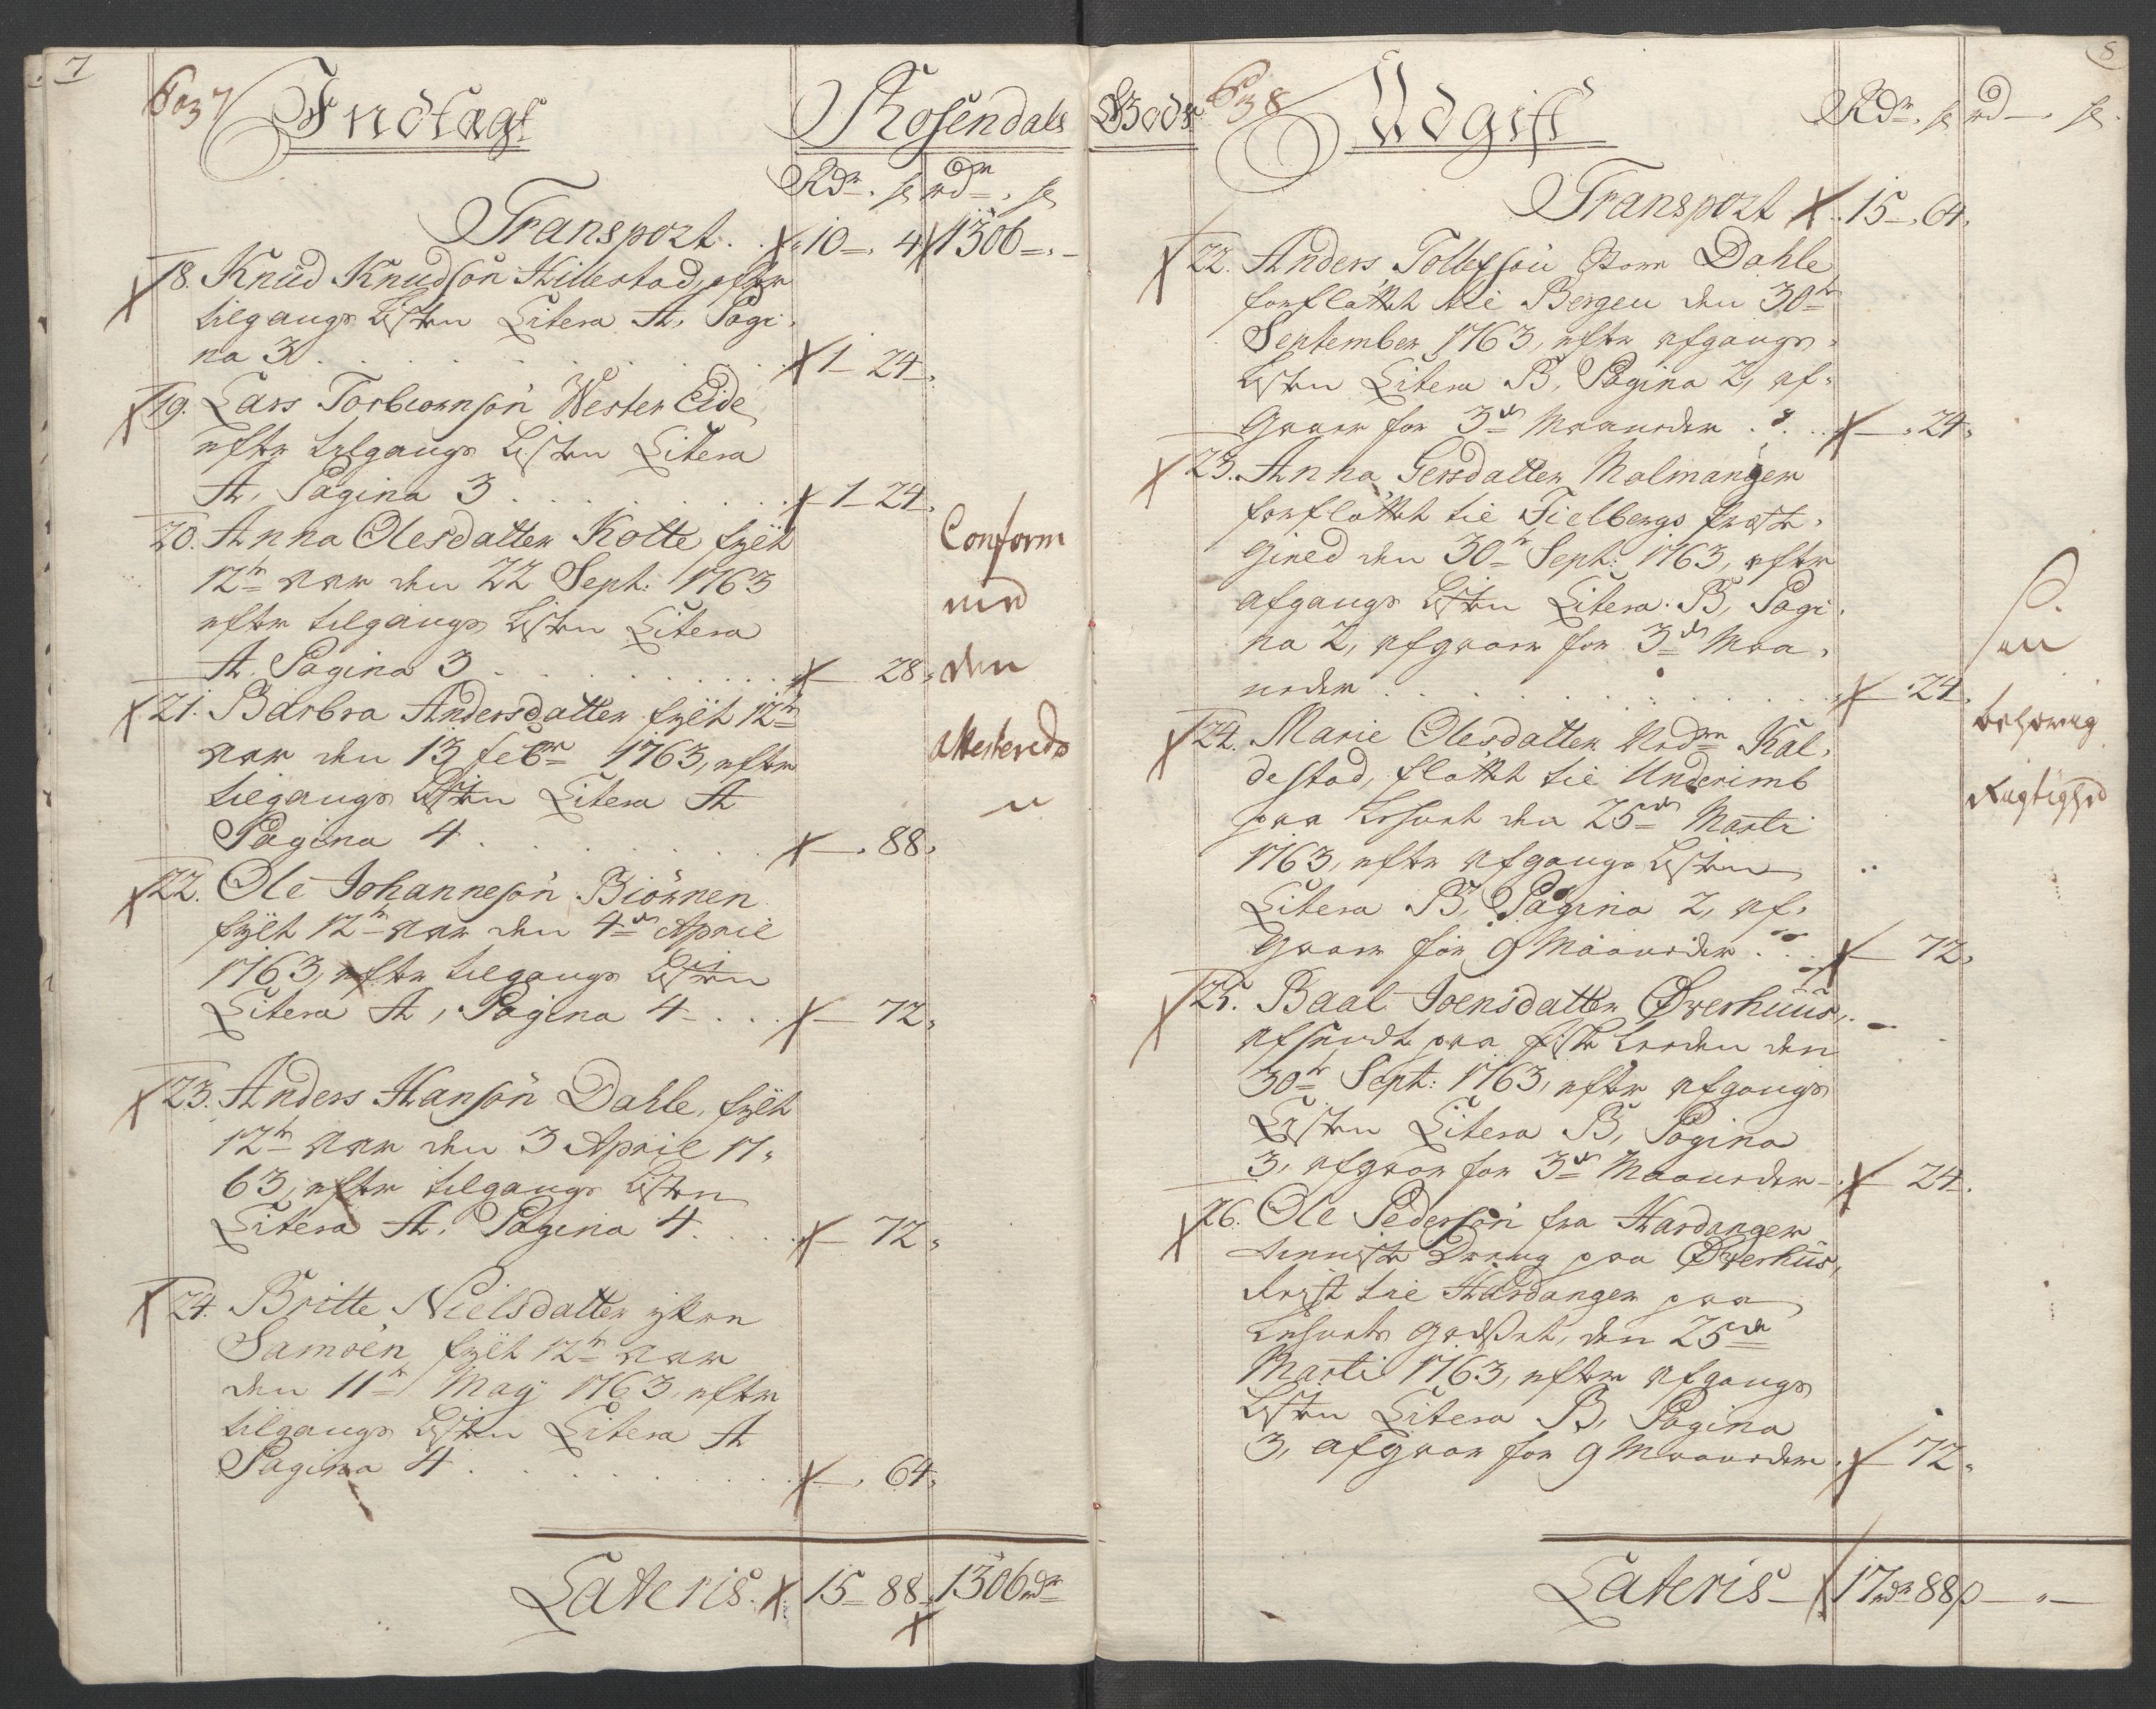 7
637
Indtægt
Rosendals
Rdr. ſ rdr. ſ
Transport . . 10 - 4 1306 - -
18. Knud Knudsøn Hillestad, efter
tilgangs Listen Litera A, Pagi-
na 3 . . . 1 - 24,
19. Lars Torbiørnsøn Wester Eide
efter tilgangs Listen Litera
A, Pagina 3 . . . 1 - 24,
20. Anna Olesdatter Kolte fyldt
12te Aar den 22 Sept: 1763
efter tilgangs Listen Litera
A, Pagina 3 . . . - 28,
21. Barbra Andersdatter fyldt 12te
Aar den 13 febr 1763, efter
tilgangs Listen Litera A
Pagina 4 . . . - 88,
22. Ole Johannesøn Biørnen
fyldt 12te Aar den 4de April
1763, efter tilgangs Listen
Litera A, Pagina 4 - . . . - 72,
23. Anders Hansøn Dahle, fyldt
12te Aar den 3 April 17-
63, efter tilgangs Listen
Litera A, Pagina 4 . . . - 72,
24. Britte Nielsdatter
Samoen, fyldt 12te Aar
den 11te May 1763, efter
tilgangs Listen Litera A
Pagina 4 . . . - 64,
Conform
med
den
attesterede
Lateris. 15 - 88 - 1306 rdr
8
Gods
638
Udgift
Rdr. ſ rd - ſ.
Transport 15 - 64,
22. Anders Tollefsøn Dahle,
forfløttet til Bergen den 30te
September 1763, efter afgangs
Listen Litera B, Pagina 2, af-
gaar for 3de Maaneder . . . - 24,
23. Anna Gersdatter Malmanger
forfløttet til Fielbergs Præste-
gield den 30te Sept: 1763, efter
afgangs Listen Litera B, Pagi-
na 2, afgaar for 3de Maa-
neder . . . - 24,
24. Marie Olesdatter Kal-
destad, fløttet til Underimb
paa Lehnet den 25de Marti
1763, efter afgangs Listen
Litera B, Pagina 2, af-
gaar for 9 Maaneder . . - 72,
25. Baal Joensdatter Øverhuus,
afsendt paa den
30te Sept: 1763, efter afgangs
Listen Litera B, Pagina
3, afgaar for 3de Maaneder - . - 24.
26. Ole Pedersøn fra Hardanger
tieniste Dreng paa Øverhuus,
reist til Hardanger paa
Lehnets Godset, den 25de
Marti 1763, efter afgangs
Listen Litera B, Pagina
3, afgaar for 9 Maaneder . - 72,
sin
behørig
Rigtighed
Lateris - 17 rdr 88 ſ - " -